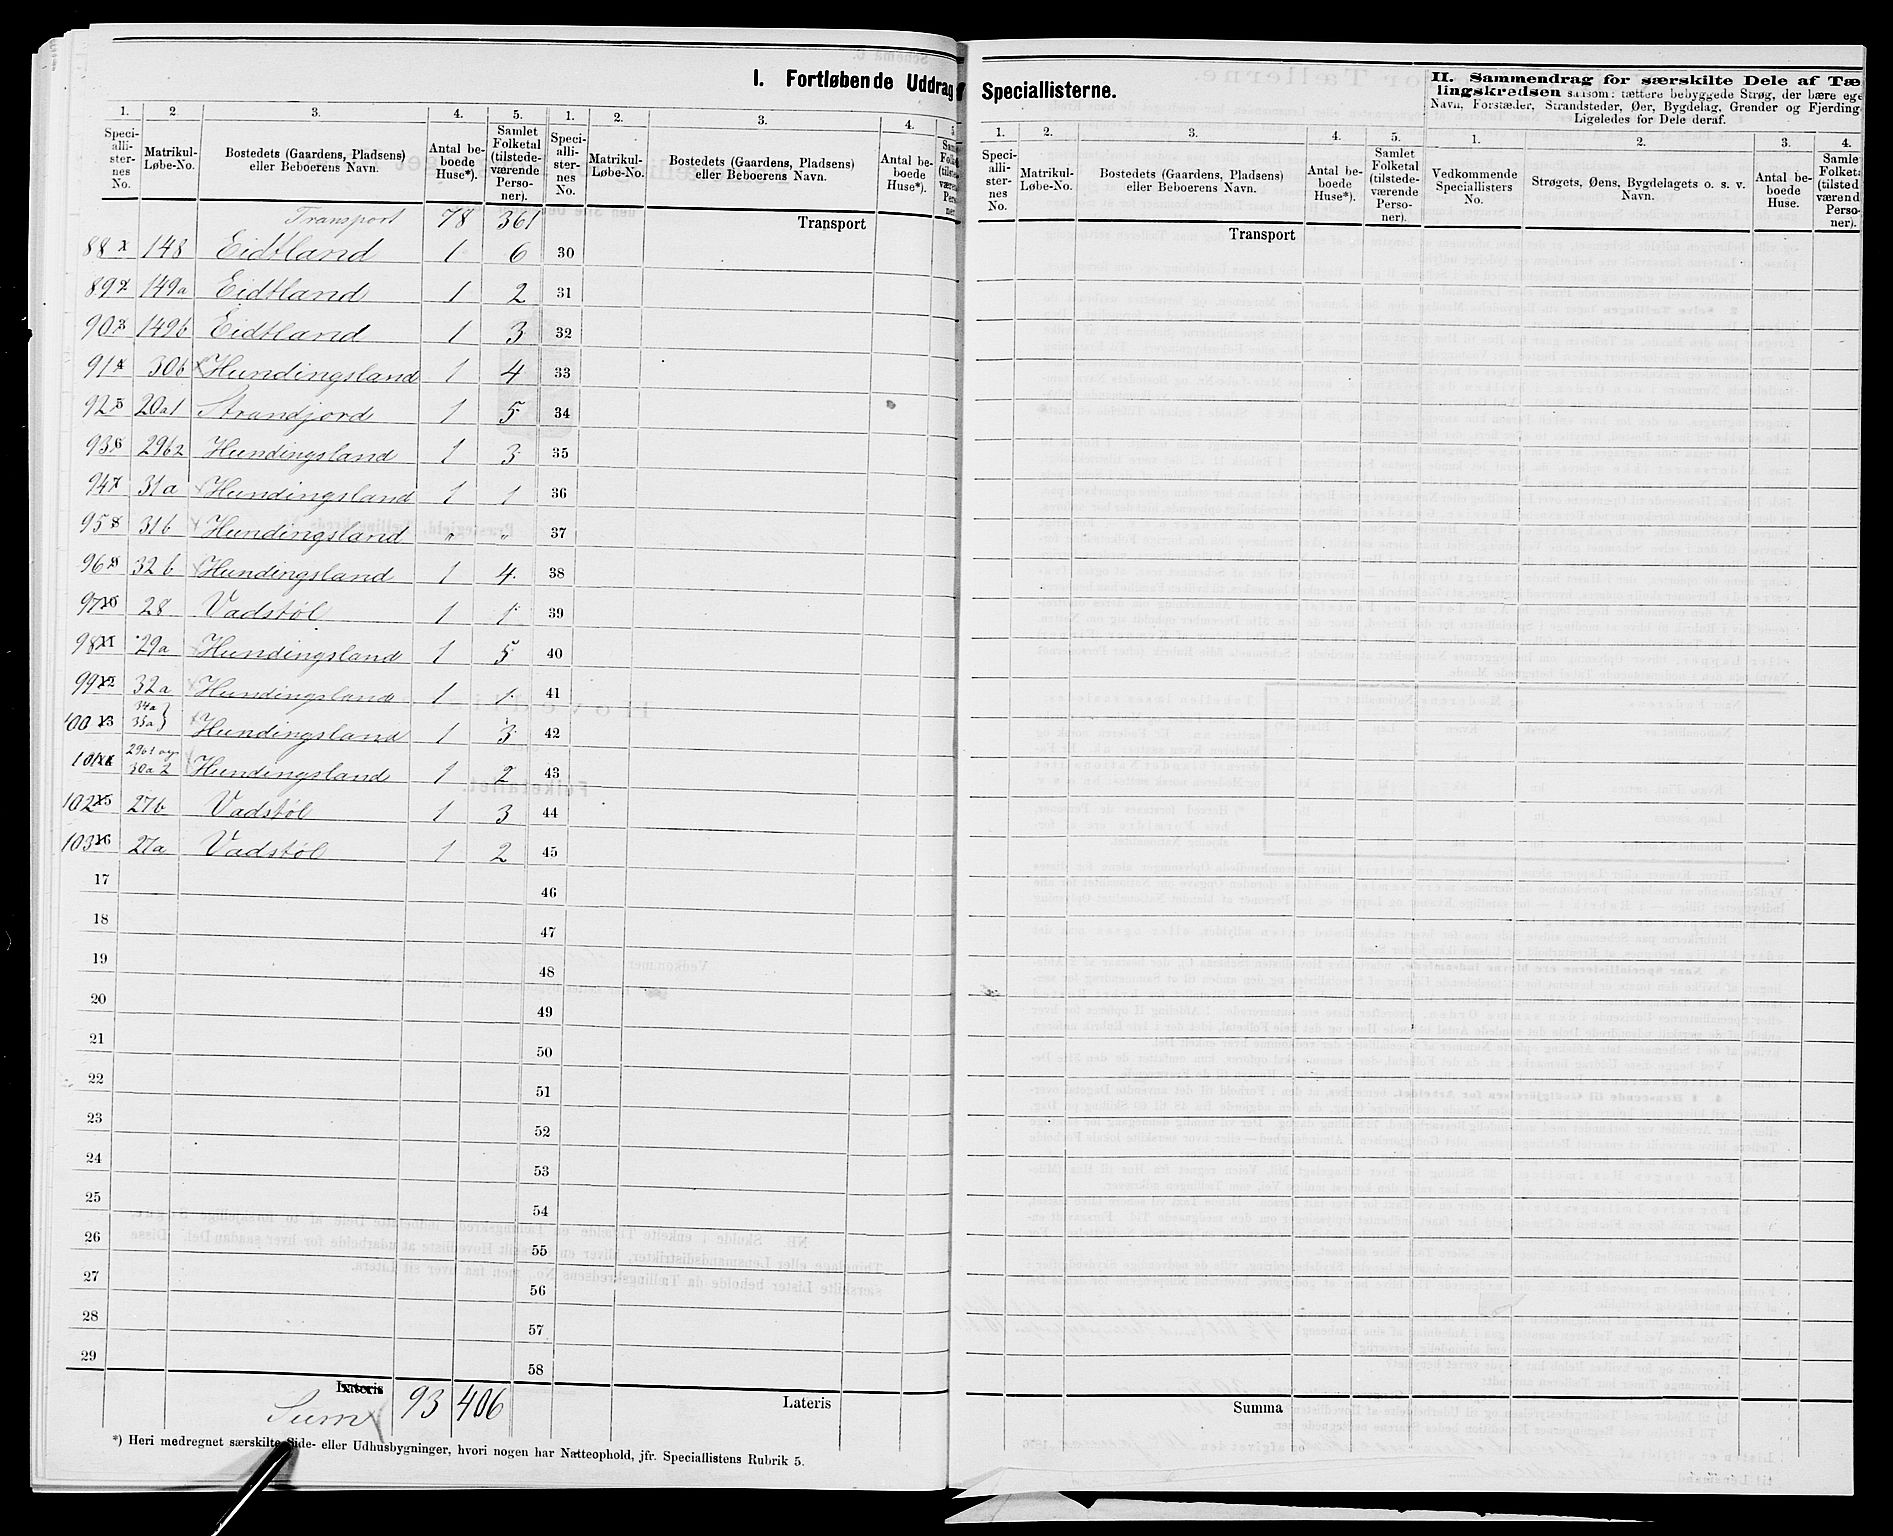 I. Fortløbende Uddrag
Speciallisterne.
II. Sammendrag for særskilte Dele af Tæ
lingskredsen saasom: tættere bebyggede Strøg, der bære ege
Navn, Forstæder, Strandsteder, Øer, Bygdelag, Grender og Fjerding
Ligeledes for Dele deraf.
1. 2. 3. 4. 5. 1. 2. 3. 4. 5
Speciallisternes No. Matrikul-Løbe-No. Bostedets (Gaardens, Pladsens) eller Beboerens Navn. Antal beboede Huse*). Samlet Folketal (tilstedeværende Personer). Speciallisternes No. Matrikul-Løbe-No. Bostedets (Gaardens, Pladsens) eller Beboerens Navn. Antal beboede Huse*).
1. 2. 3. 4. 5. 1. 2. 3. 4.
Speciallisternes No. Matrikul-Løbe-No. Bostedets (Gaardens, Pladsens) eller Beboerens Navn. Antal beboede Huse*). Samlet Folketal (tilstedeværende Personer). Vedkommende Speciallisters No. Strøgets, Øens, Bygdelagets o. s. v. Navn. Antal beboede Huse. Samle Folket (tilsted værend Personer).
Transport 78 361 Transport Transport
88 1 148 Eidtland 1 6 30
89 2 149a Eidtland 1 2 31
90 3 149b Eidtland 1 3 32
91 4 30b Hundingsland 1 4 33
92 5 20a1 Strandjord 1 5 34
93 6 29b2 Hundingsland 1 3 35
94 7 31a Hundingsland 1 1 36
95 8 31b Hundingsland " " 37
96 9 32b Hundingsland 1 4 38
97 10 28 Vadstøl 1 1 39
98 11 29a Hundingsland 1 5 40
99 12 32a Hundingsland 1 1 41
100 13 34a 35a} Hundingsland 1 3 42
101 14 29b1 og 30a2 Hundingsland 1 2 43
102 15 27b Vadstøl 1 3 44
103 16 27a Vadstøl 1 2 45
17 46
18 47
19 48
20 49
21 50
22 51
23 52
24 53
25 54
26 55
27 56
28 57
29 58
Lateris 93 406 Lateris Summa
Sum
*) Heri medregnet særskilte Side- eller Udhusbygninger, hvori nogen har Natteophold, jfr. Speciallistens Rubrik 5.